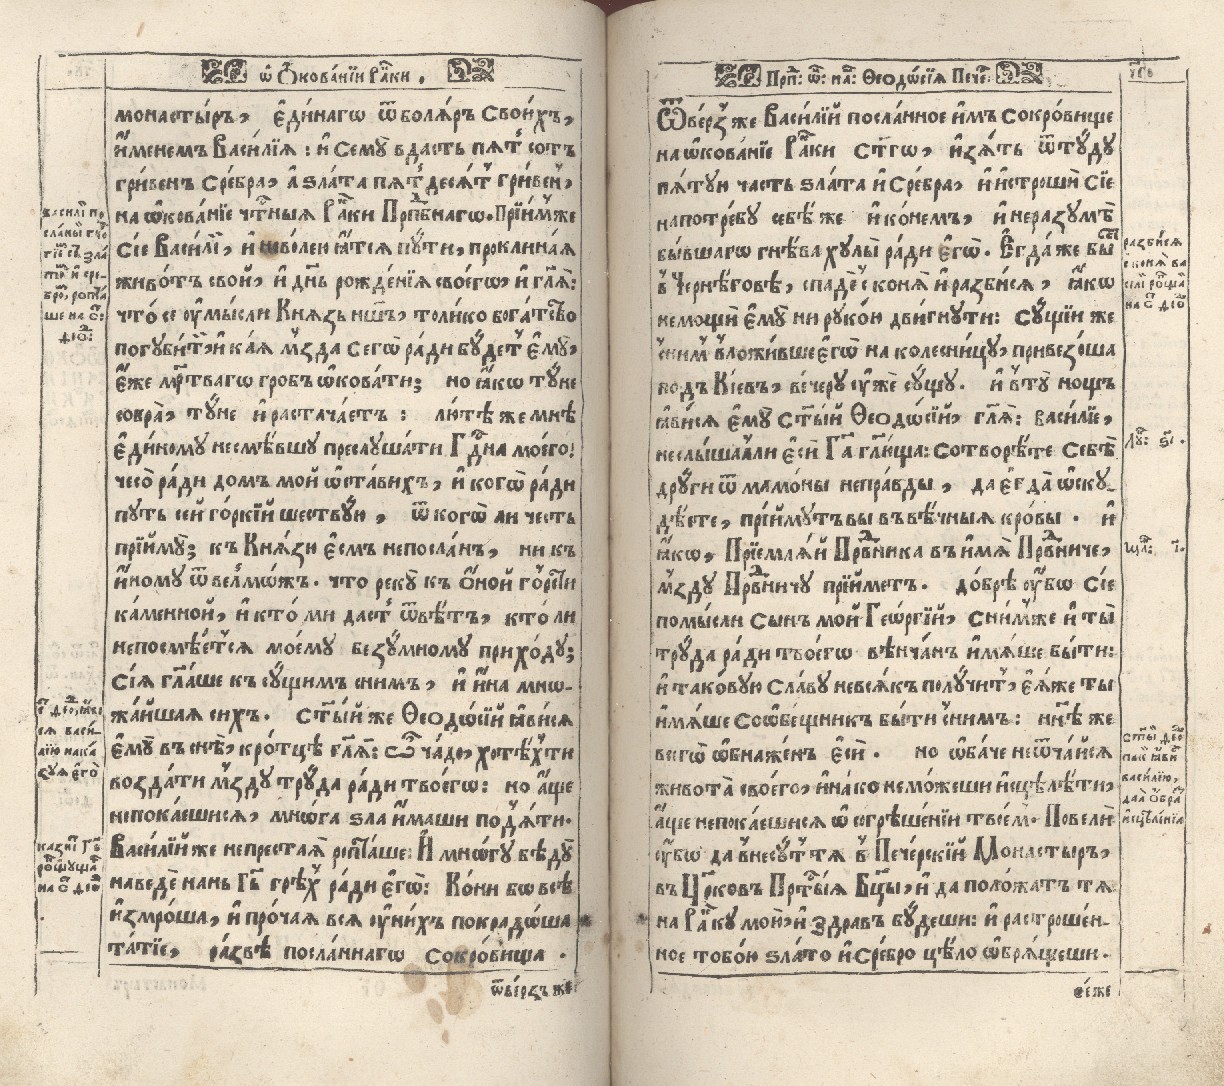 ѡ҆ Ѻ҆кова́нїи Ра́ки .
монасты́ръ, є҆ди́нагѡ ѿ болѧ́ръ Свои́хъ,
и҆́менемъ Васи́лїѧ : и҆ Семꙋ̀ вдасть пѧ́т̾ со́тъ
гри́венъ Сребра̀, а҆ ѕла́та пѧ́т̾десѧ́т̾ гри́вен̾,
на ѡ҆кова́нїе чⷭ҇тныѧ Ра́ки Прпⷣбнагѡ. Прїи́м̾же
Сїе Васи́лїй, и҆
живо́тъ свой, и҆ дн҃ь рожде́нїѧ своегѡ̀, и҆ гл҃ѧ:
что́ се ᲂу҆мы́сли Кнѧ́зь нш҃ъ, толи́ко бога́тство
погꙋби́т̾, и҆ ка́ѧ мъзда Сегѡ̀ ра́ди бꙋ́дет̾ є҆мꙋ̀,
є҆́же мр҃твагѡ гробъ ѡ҆кова́ти; но ꙗ҆́кѡ тꙋ́не
собра̀, тꙋ́не и҆ растача́етъ : лю́тѣ же мнѣ̀
є҆ди́номꙋ несмѣ́вшꙋ преслꙋшати Гⷭ҇дна моего̀!
чесо̀ ра́ди домъ мой ѡ҆ста́вихъ, и҆ когѡ̀ ра́ди
пꙋть сей го́ркїй ше́ствꙋю, ѿ когѡ̀ ли честь
прїймꙋ̀; къ Кнѧ́зи є҆́смъ непосла́нъ, ни къ
и҆́номꙋ ѿ вел̾мѡ́жъ . что рекꙋ̀ къ ѻ҆́ной го́рсти
ка́менной, и҆ кто́ ми даст̾ ѿвѣ́тъ, кто́ ли
непосмѣе́т̾сѧ моемꙋ̀ безꙋ́мномꙋ прихо́дꙋ;
Сїѧ̀ гл҃аше къ сꙋ́щимъ сним̾, и҆ и҆́на мно-
жа́йшаѧ сихъ . Ст҃ы́й же Ѳеодѡ́сїй ꙗ҆ви́сѧ
є҆мꙋ̀ въ снѣ̀, кро́тцѣ гл҃ѧ: Ѽ ча́до, хотѣ́х̾ ти
возда́ти мъздꙋ̀ трꙋда̀ ра́ди твоегѡ̀: но а҆́ще
непока́ешисѧ, мнѡ́га ѕла̀ и҆́маши подѧ́ти.
Васи́лїй же непреста́ѧ ропта́ше: И҆ мнѡ́гꙋ бѣдꙋ̀
наведѐ нань Гь҃ грѣх̾ ра́ди є҆гѡ̀: Ко́ни бѡ всѣ̀
и҆змро́ша, и҆ про́чаѧ всѧ ᲂу҆ ни́хъ покрадо́ша
та́тїе, ра́звѣ посла́ннагѡ Сокро́вища .
ѿве́рзъ же
Прпⷣ: ѿ: на́: Ѳеодѡ́сїѧ Пече:
Ѿве́рз̾ же Васи́лїй посла́нное и҆мъ сокро́вище
на ѡ҆кова́нїе Ра́ки ст҃гѡ, и҆з̾ѧ́тъ ѿтꙋ́дꙋ
пѧ́тꙋю часть ѕла́та и҆ Сребра̀, и҆ и҆строшѝ Сїе
на потре́бꙋ себѣ́ же и҆ ко́немъ, и҆ неразꙋмѣ̀
бы́вшагѡ гнѣ́ва хꙋлы̀ ра́ди є҆гѡ̀. Е҆гда́ же бы́
в̾ Черни́говѣ, спадѐ с̾ конѧ̀ и҆ разби́сѧ, ꙗ҆́кѡ
немощѝ є҆мꙋ̀ ни рꙋко́ю дви́гнꙋти: сꙋ́щїи же
сним̾ вложи́вше є҆гѡ̀ на колесни́цꙋ, привезо́ша
подъ Кі́евъ, ве́черꙋ ᲂу҆жѐ сꙋ́щꙋ . и҆ в̾ тꙋ̀ нощъ
ꙗ҆ви́сѧ є҆мꙋ̀ Ст҃ы́й Ѳеодѡ́сїй, гл҃ѧ: васи́лїе,
неслы́шалли є҆сѝ Гⷭ҇а гл҃юща: сотвори́те себѣ̀
дрꙋ́ги ѿ мамо́ны непра́вды, да є҆гда̀ ѡ҆скꙋ-
дѣ́ете, прїймꙋ́тъ вы въ вѣ́чныѧ кро́вы . и҆
ꙗ҆́кѡ, Прїемлѧ́й Првⷣника въ и҆́мѧ Првⷣниче,
мъздꙋ̀ Првⷣничꙋ прїи́метъ . до́брѣ ᲂу҆́бѡ Сїѐ
помы́сли Сынъ мой Геѡ́ргїй, с̾ ни́м̾же и҆ ты̀
трꙋда̀ ра́ди твоегѡ̀ вѣнча́нъ и҆мѧ́ше бы́ти:
и҆ такову́ю Сла́вꙋ невсѧ́къ полꙋчи́т̾, є҆ѧ́же ты
и҆мѧ́ше Соѡ҆́бещникъ бы́ти с̾ ним̾: ни҃ѣ же
всегѡ̀ ѡ҆бнаже́нъ є҆сѝ . но ѡ҆ба́че неѿча́йсѧ
живота̀ своегѡ̀, и҆на́ко немо́жеши и҆сцѣлѣ́ти,
а҆́ще непока́ешисѧ ѡ҆ согрѣше́нїи твое́м̾. Повелѝ
ᲂу҆́бѡ да внесꙋ́т̾ тѧ в̾ Пече́рскїй Монасты́ръ,
въ Цр҃ковъ Прⷭ҇ты́ѧ Бц҃ы, и҆ да поло́жатъ тѧ
на Ра́кꙋ мою̀, и҆ здравъ бꙋ́деши: и҆ растроше́н-
ное тобо́ю ѕла́то и҆ Сребро̀ цѣ́ло ѡ҆брѧ́щеши .
се́ же